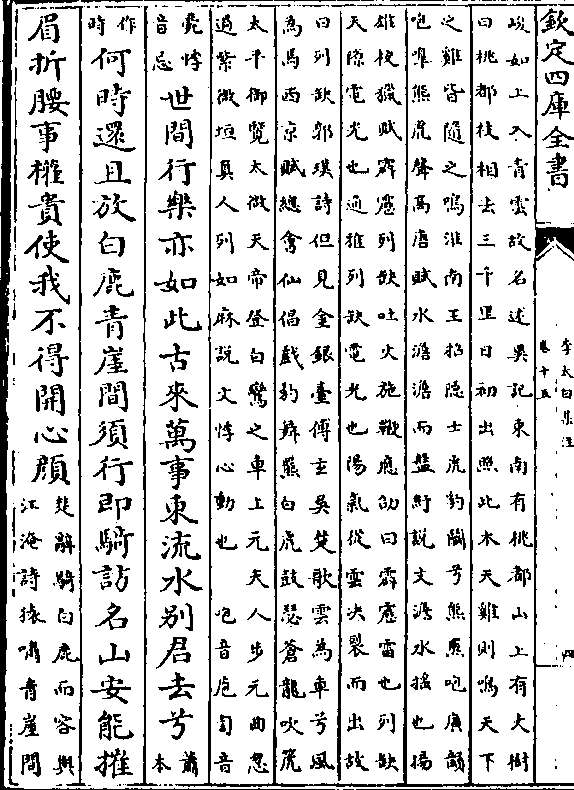 欽定四庫全書
李太白集注
卷十五
峻如上入青雲故名述異記東南有桃都山上有大樹
曰桃都枝相去三千里日初出照此木天雞則鳴天下
之雞皆隨之鳴淮南王招隐士虎豹鬬兮熊羆咆廣韻
咆嘷熊虎聲髙唐賦水澹澹而盤紆説文澹水搖也揚
雄校獵賦霹靂列缺吐火施鞭應劭曰霹靂雷也列缺
天隙電光也通雅列缺電光也陽氣從雲决裂而出故
曰列缺郭璞詩但見金銀臺傅𤣥吳楚歌雲為車兮風
為馬西京賦總會仙倡戲豹舞羆白虎鼓瑟蒼龍吹篪
太平御覽太微天帝登白鸞之車上元夫人步元曲忽
過紫微垣真人列如麻説文悸心動也 咆音庖訇音
轟悸
音忌
世間行樂亦如此古來萬事東流水别君去兮
蕭本
作時
何時還且放白鹿青崖間須行即騎訪名山安能摧
眉折腰事權貴使我不得開心顔
楚辭騎白鹿而容與
江淹詩猿嘯青崖間